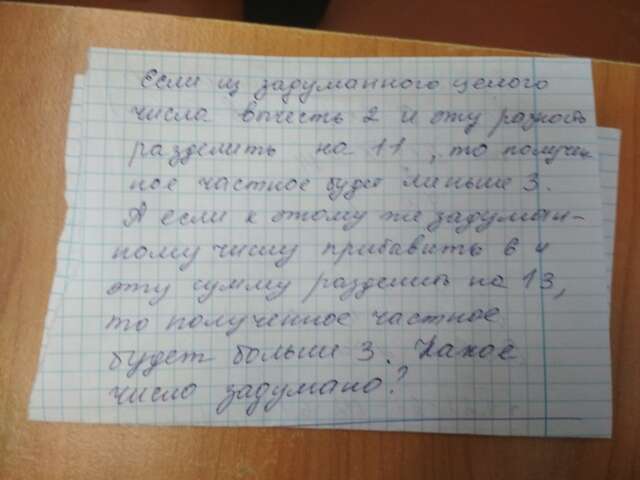 Если из задуманного целого
числа вычесть 2 и эту разность
разделить на 11, то получен
ное частное будет меньше 3.
А если к этому же задуман-
ному числу прибавить 6 и
эту сумму разделить на 13,
то полученное частное
будет больше 3. Какое
число задумано?